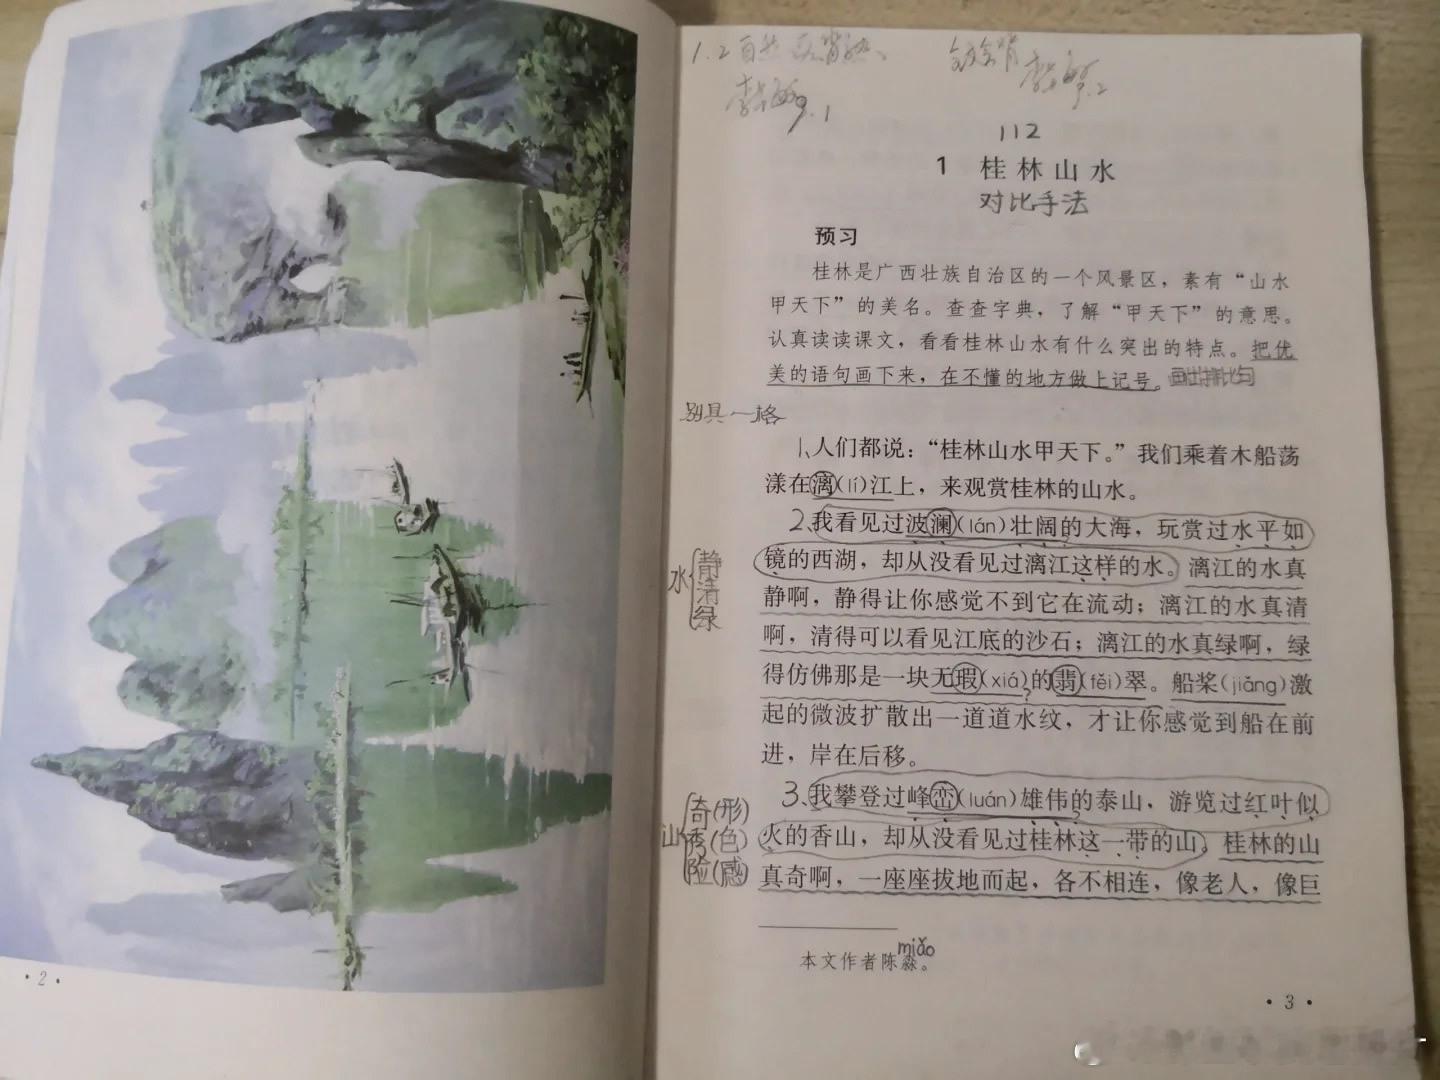 1.2自然
9.1
9.2
112
1 桂林山水
对比手法
预习
桂林是广西壮族自治区的一个风景区，素有“山水
甲天下”的美名。查查字典，了解“甲天下”的意思。
认真读读课文，看看桂林山水有什么突出的特点。把优
美的语句画下来，在不懂的地方做上记号。画出排比句
别具一格
1、人们都说：“桂林山水甲天下。”我们乘着木船荡
漾在漓(lí)江上，来观赏桂林的山水。
2、我看见过波澜(lán)壮阔的大海，玩赏过水平如
镜的西湖，却从没看见过漓江这样的水。漓江的水真
静啊，静得让你感觉不到它在流动；漓江的水真清
啊，清得可以看见江底的沙石；漓江的水真绿啊，绿
得仿佛那是一块无瑕(xiá)的翡(fěi)翠。船桨(jiǎng)激
起的微波扩散出一道道水纹，才让你感觉到船在前
进，岸在后移。
水 静
清
绿
3、我攀登过峰峦(luán)雄伟的泰山，游览过红叶似
火的香山，却从没看见过桂林这一带的山，桂林的山
真奇啊，一座座拔地而起，各不相连，像老人，像巨
山 奇(形)
秀(色)
险(感)
miǎo
本文作者陈淼。
·2·
·3·